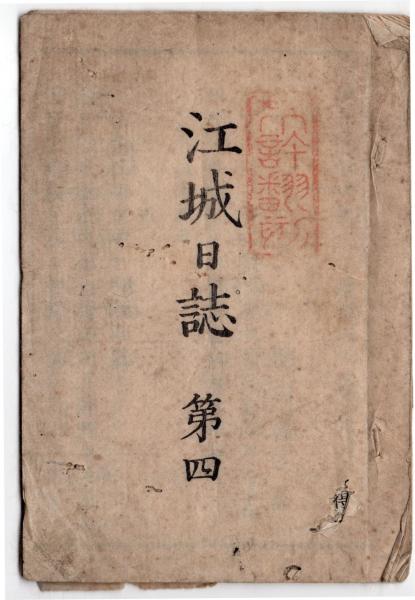 江城日誌 第四
得